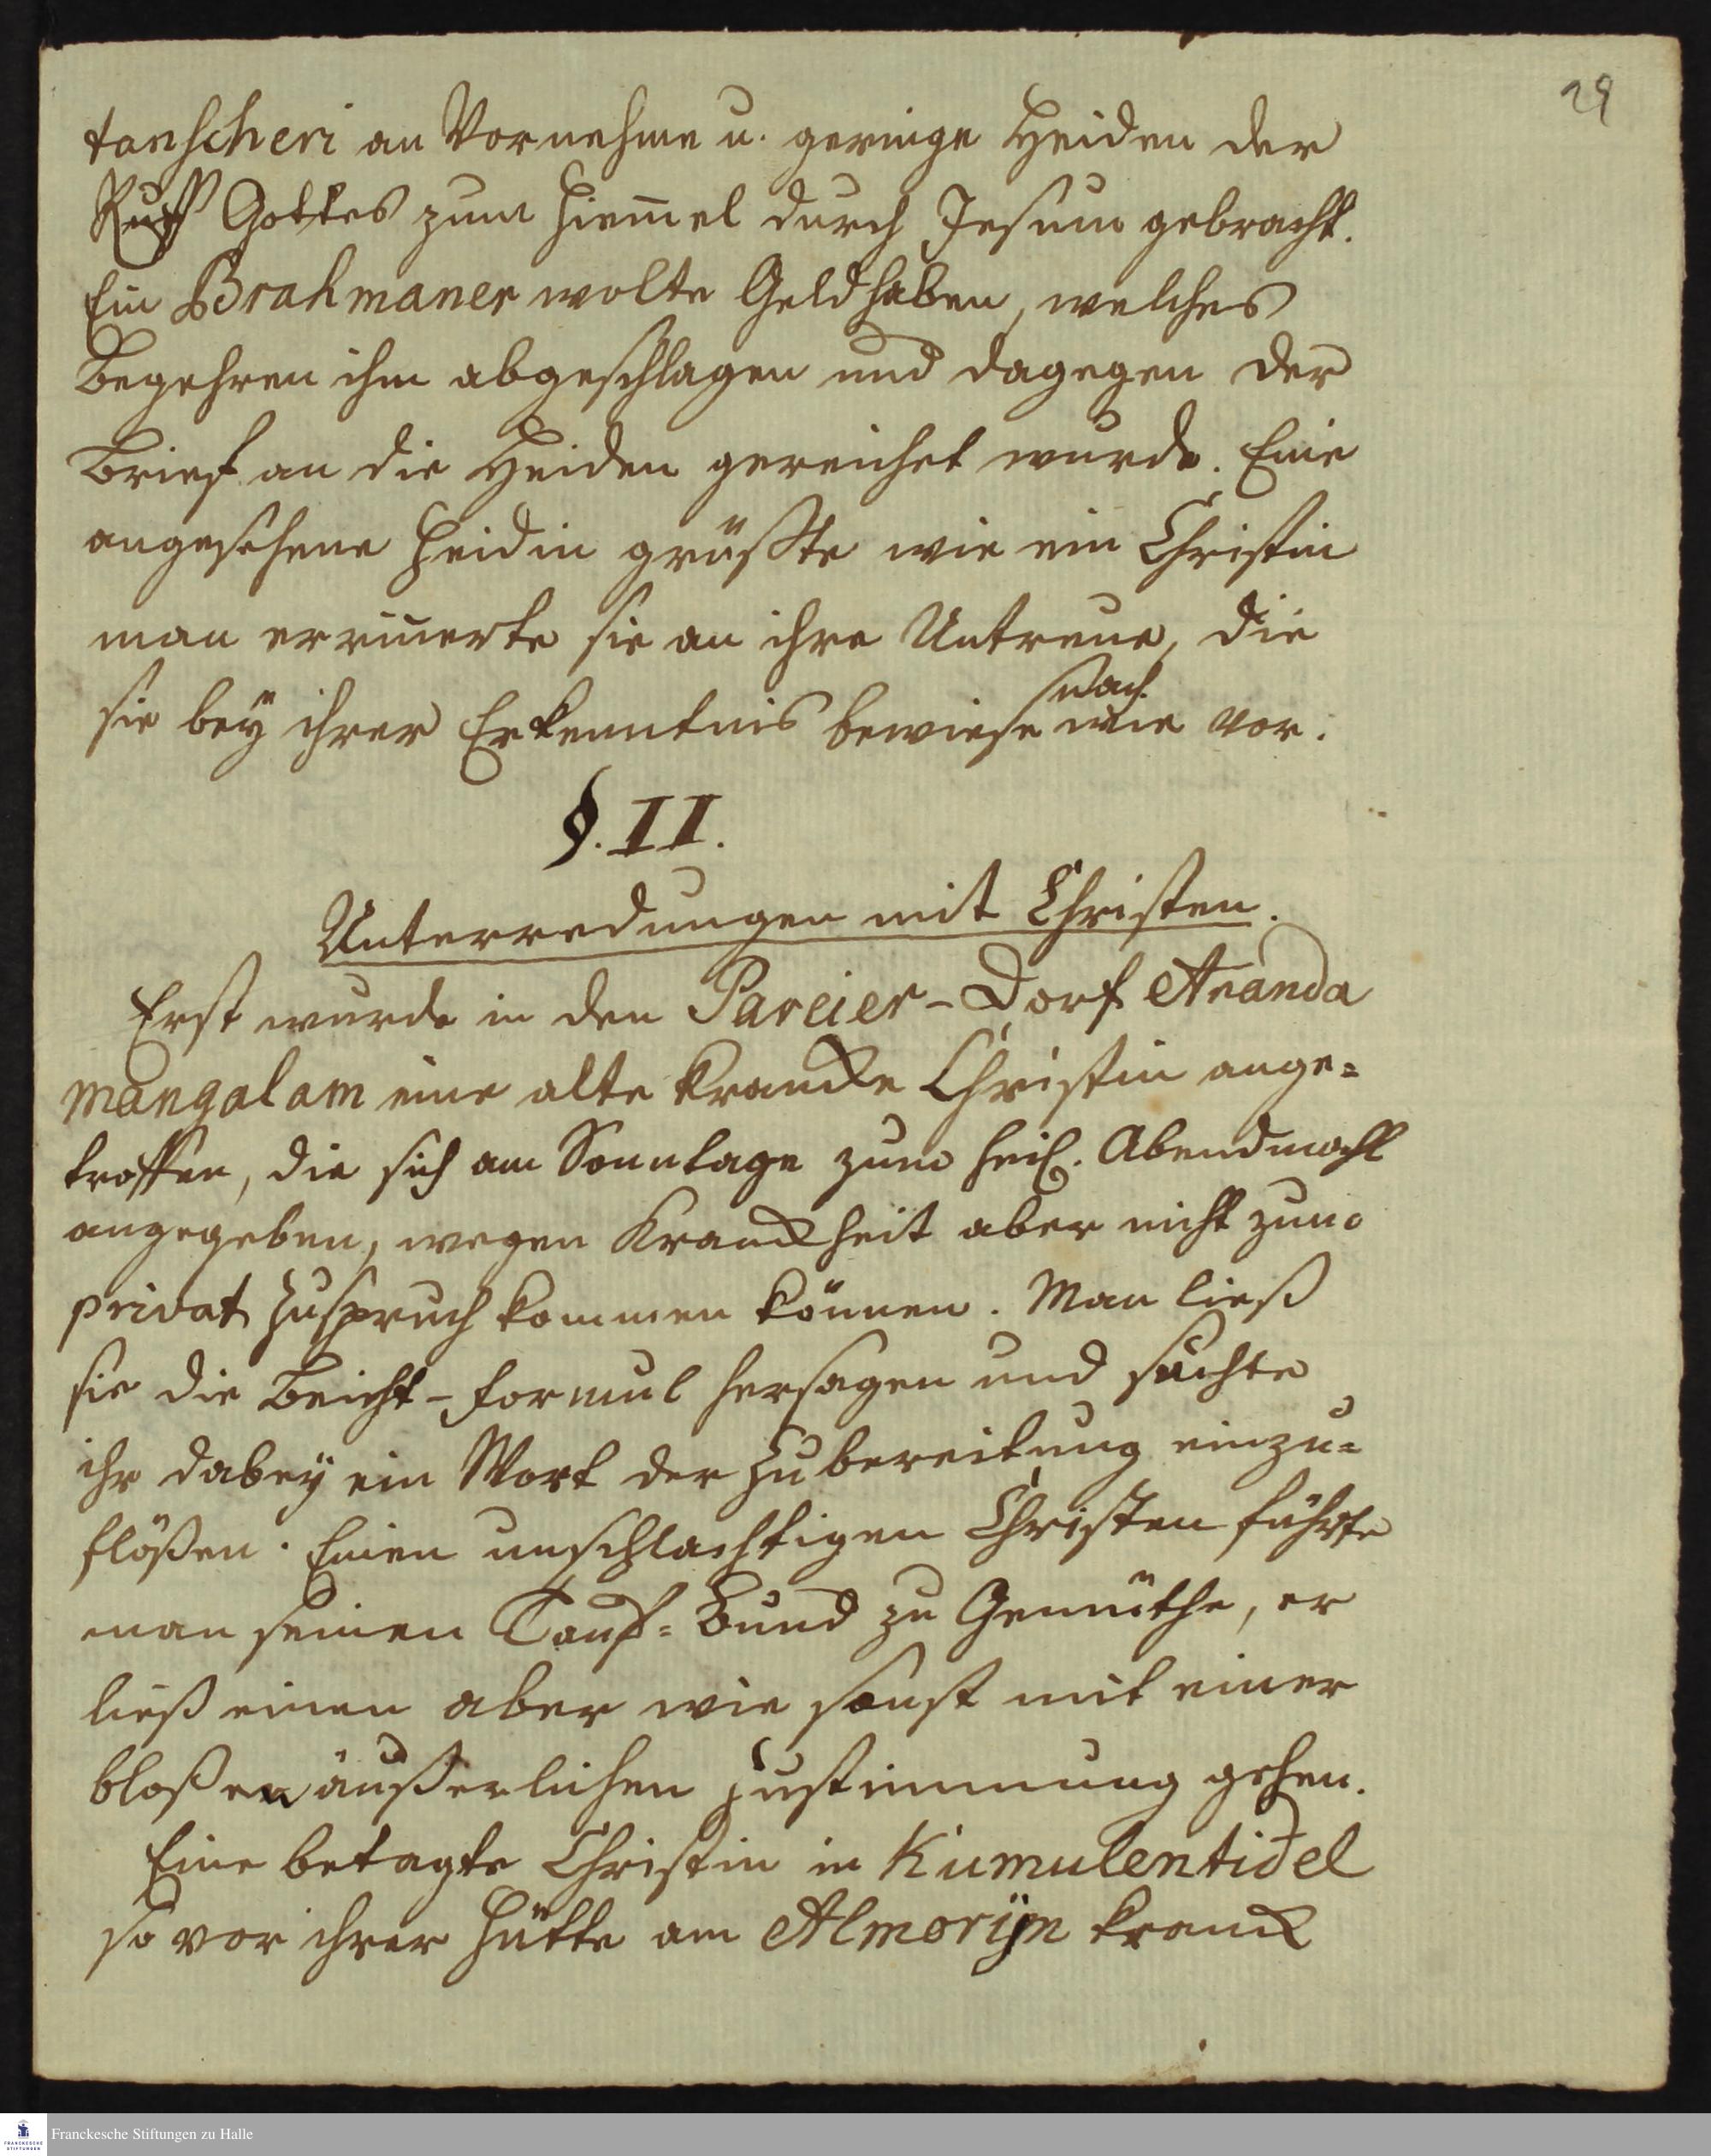 29
tanscheri an Vornehme u. geringe Heiden der
Ruff Gottes zum Him̄el durch Jesum gebracht.
Ein Brahmaner wolte Geld haben, welches
Begehren ihm abgeschlagen und dagegen der
Brief an die Heiden gereichet wurde. Eine
angesehene Heidin grüßte wie ein Christin
man erinnerte sie an ihre Untreue, die
nach
sie bey ihrer Erkenntnis bewiese wie vor.
§. II.
Unterredungen mit Christen.
Erst wurde in den Pareier-Dorf Ananda
mangalam eine alte krancke Christin ange=
troffen, die sich am Sonntage zum heil. Abendmahl
angegeben, wegen Kranckheit aber nicht zum
privat Zuspruch kommen können. Man ließ
sie die Beicht-formul hersagen und suchte
ihr dabey ein Wort der Zubereitung einzu=
flößen. Einen unschlachtigen Christen führte
man seinen Tauf=Bund zu Gemüthe, er
ließ einen aber wie sonst mit einer
bloßen äußerlichen Zustimmung gehen.
Eine betagte Christin in Kumulentidel
so vor ihrer Hütte am Almorijn kranck
Franckesche Stiftungen zu Halle